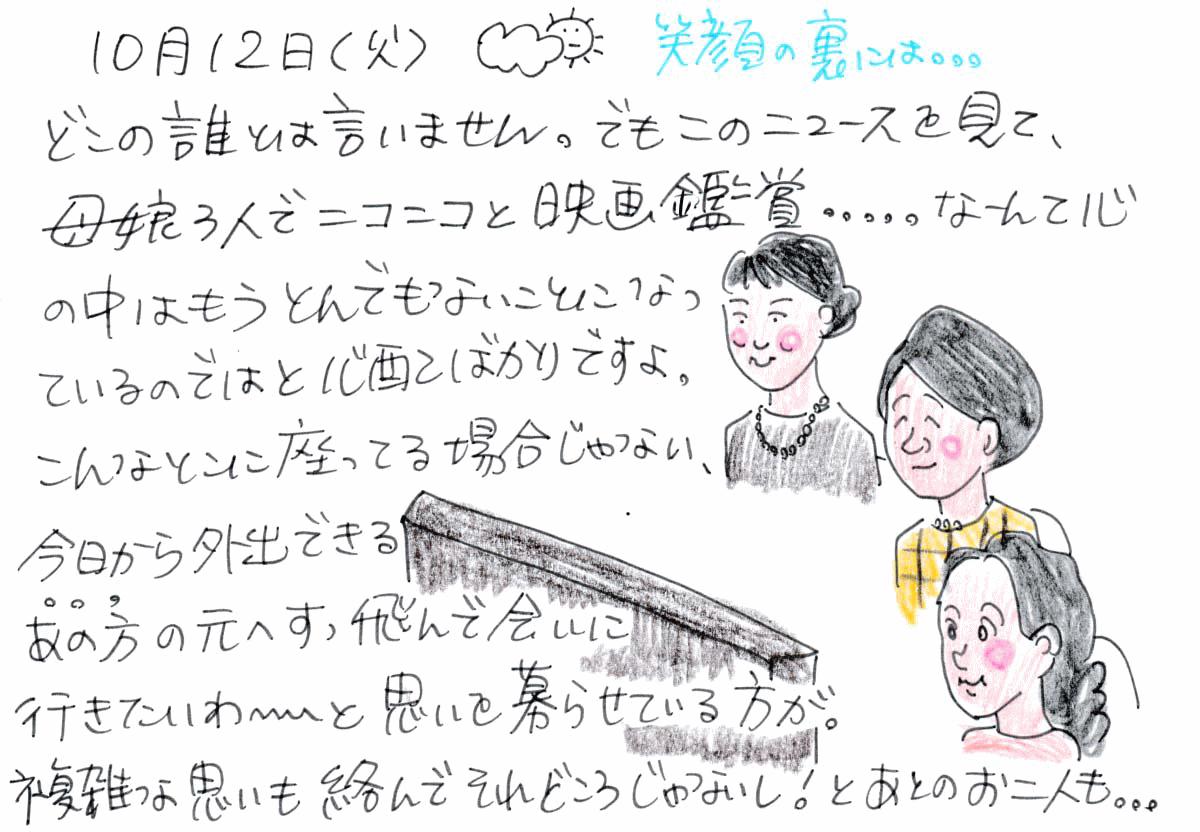 10月12日(火) 笑顔の裏には。。。
どこの誰とは言いません。でもこのニュースを見て、
母娘3人でニコニコと映画鑑賞.....。なーんて心
の中はもうとんでもないことになっ
ているのではと心配でばかりですよ。
こんなとこに座ってる場合じゃない、
今日から外出できる
あの方の元へすっ飛んで会いに
行きたいわ〜〜と思いを募らせている方が。
複雑な思いも絡んでそれどころじゃないし!とあとのお二人も...